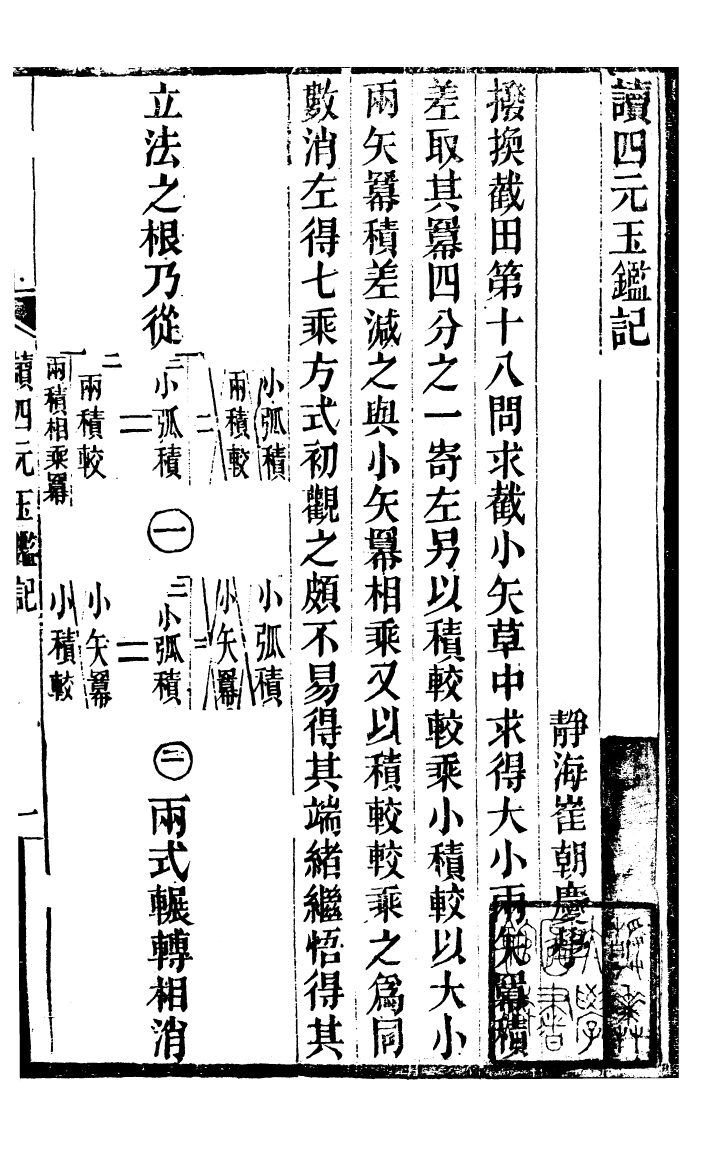 讀四元玉鑑記
靜海崔朝慶學
撥換截田第十八問求截小矢草中求得大小兩矢冪積
差取其冪四分之一寄左另以積較較乘小積較以大小
兩矢冪積差減之與小矢冪相乘又以積較較乘之爲同
數消左得七乘方式初觀之頗不易得其端緒繼悟得其
立法之根乃從
小弧積
兩積較
二
二小弧積
二
兩積較
兩積相乘冪
㊀
小弧積
小矢冪
二
二小弧積
二
小矢冪
小積較
㊁兩式輾轉相消
讀四元玉鑑記
一